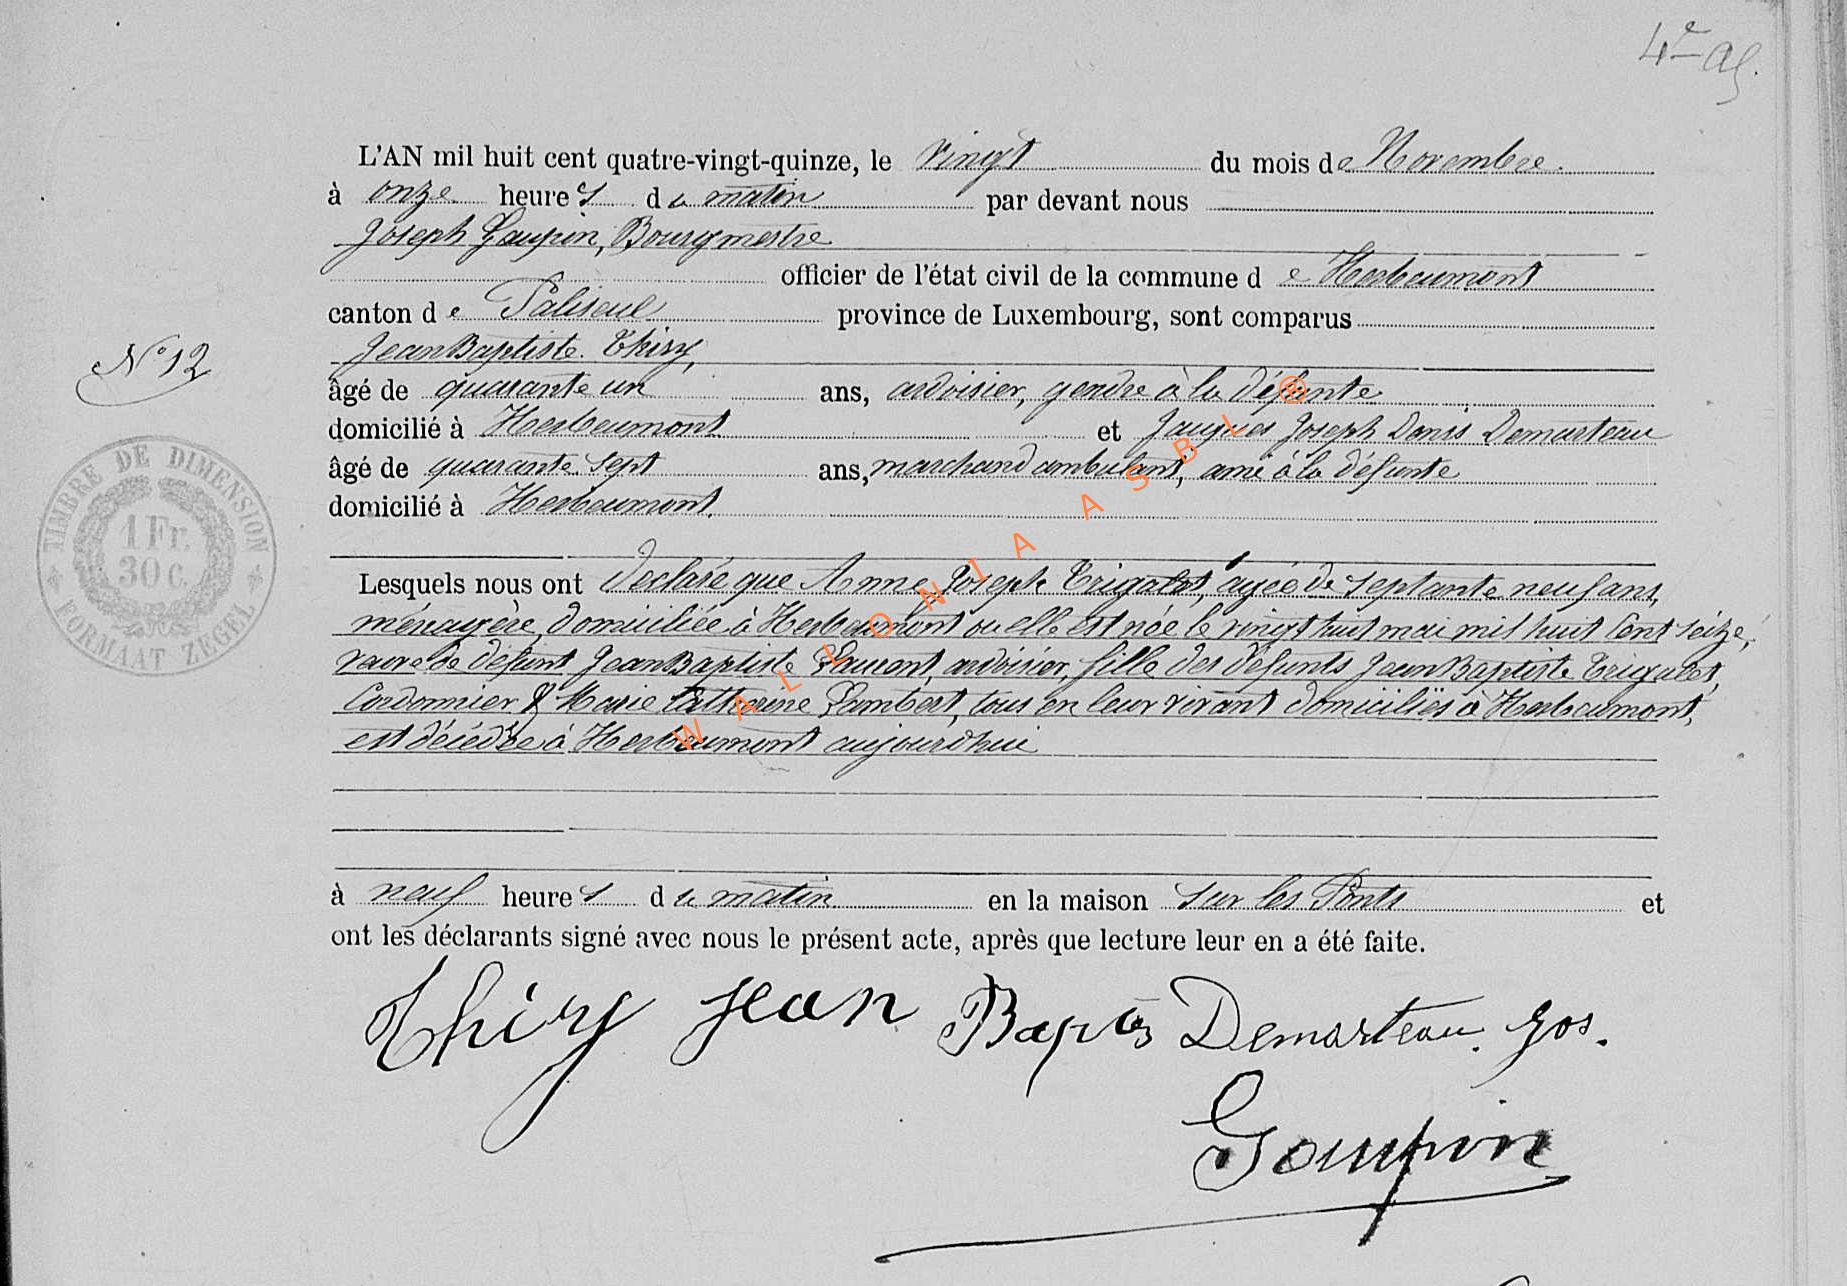 4e as.
L'AN mil huit cent quatre-vingt-quinze, le vingt du mois de Novembre.
à onze heures du matin par devant nous
Joseph Goupin, Bourgmestre
officier de l'état civil de la commune de Herbeumont
canton de Paliseul province de Luxembourg, sont comparus
Jean Baptiste Thiry,
N° 12
âgé de quarante un ans, ardoisier, gendre à la défunte
domicilié à Herbeumont et Jacques Joseph Denis Demarteau
âgé de quarante sept ans, marchand ambulant, ami à la défunte
domicilié à Herbeumont.
TIMBRE DE DIMENSION
1 Fr.
30 c.
FORMAAT ZEGEL
Lesquels nous ont déclaré que Anne Joseph Trigalet, agée de septante neuf ans,
ménagère, domiciliée à Herbeumont ou elle est née le vingt huit mai mil huit cent seize,
veuve de défunt Jean Baptiste Laurent, ardoisier, fille des défunts Jean Baptiste Trigalet,
Cordonnier & Marie Catherine Lambert, tous en leur vivant domiciliés à Herbeumont,
est décédée à Herbeumont aujourd'hui
à neuf heures du matin en la maison sur les Ponts et
ont les déclarants signé avec nous le présent acte, après que lecture leur en a été faite.
Thiry Jean Baptis Demarteau. Jos.
Goupin
WALLONIA ASBL ®